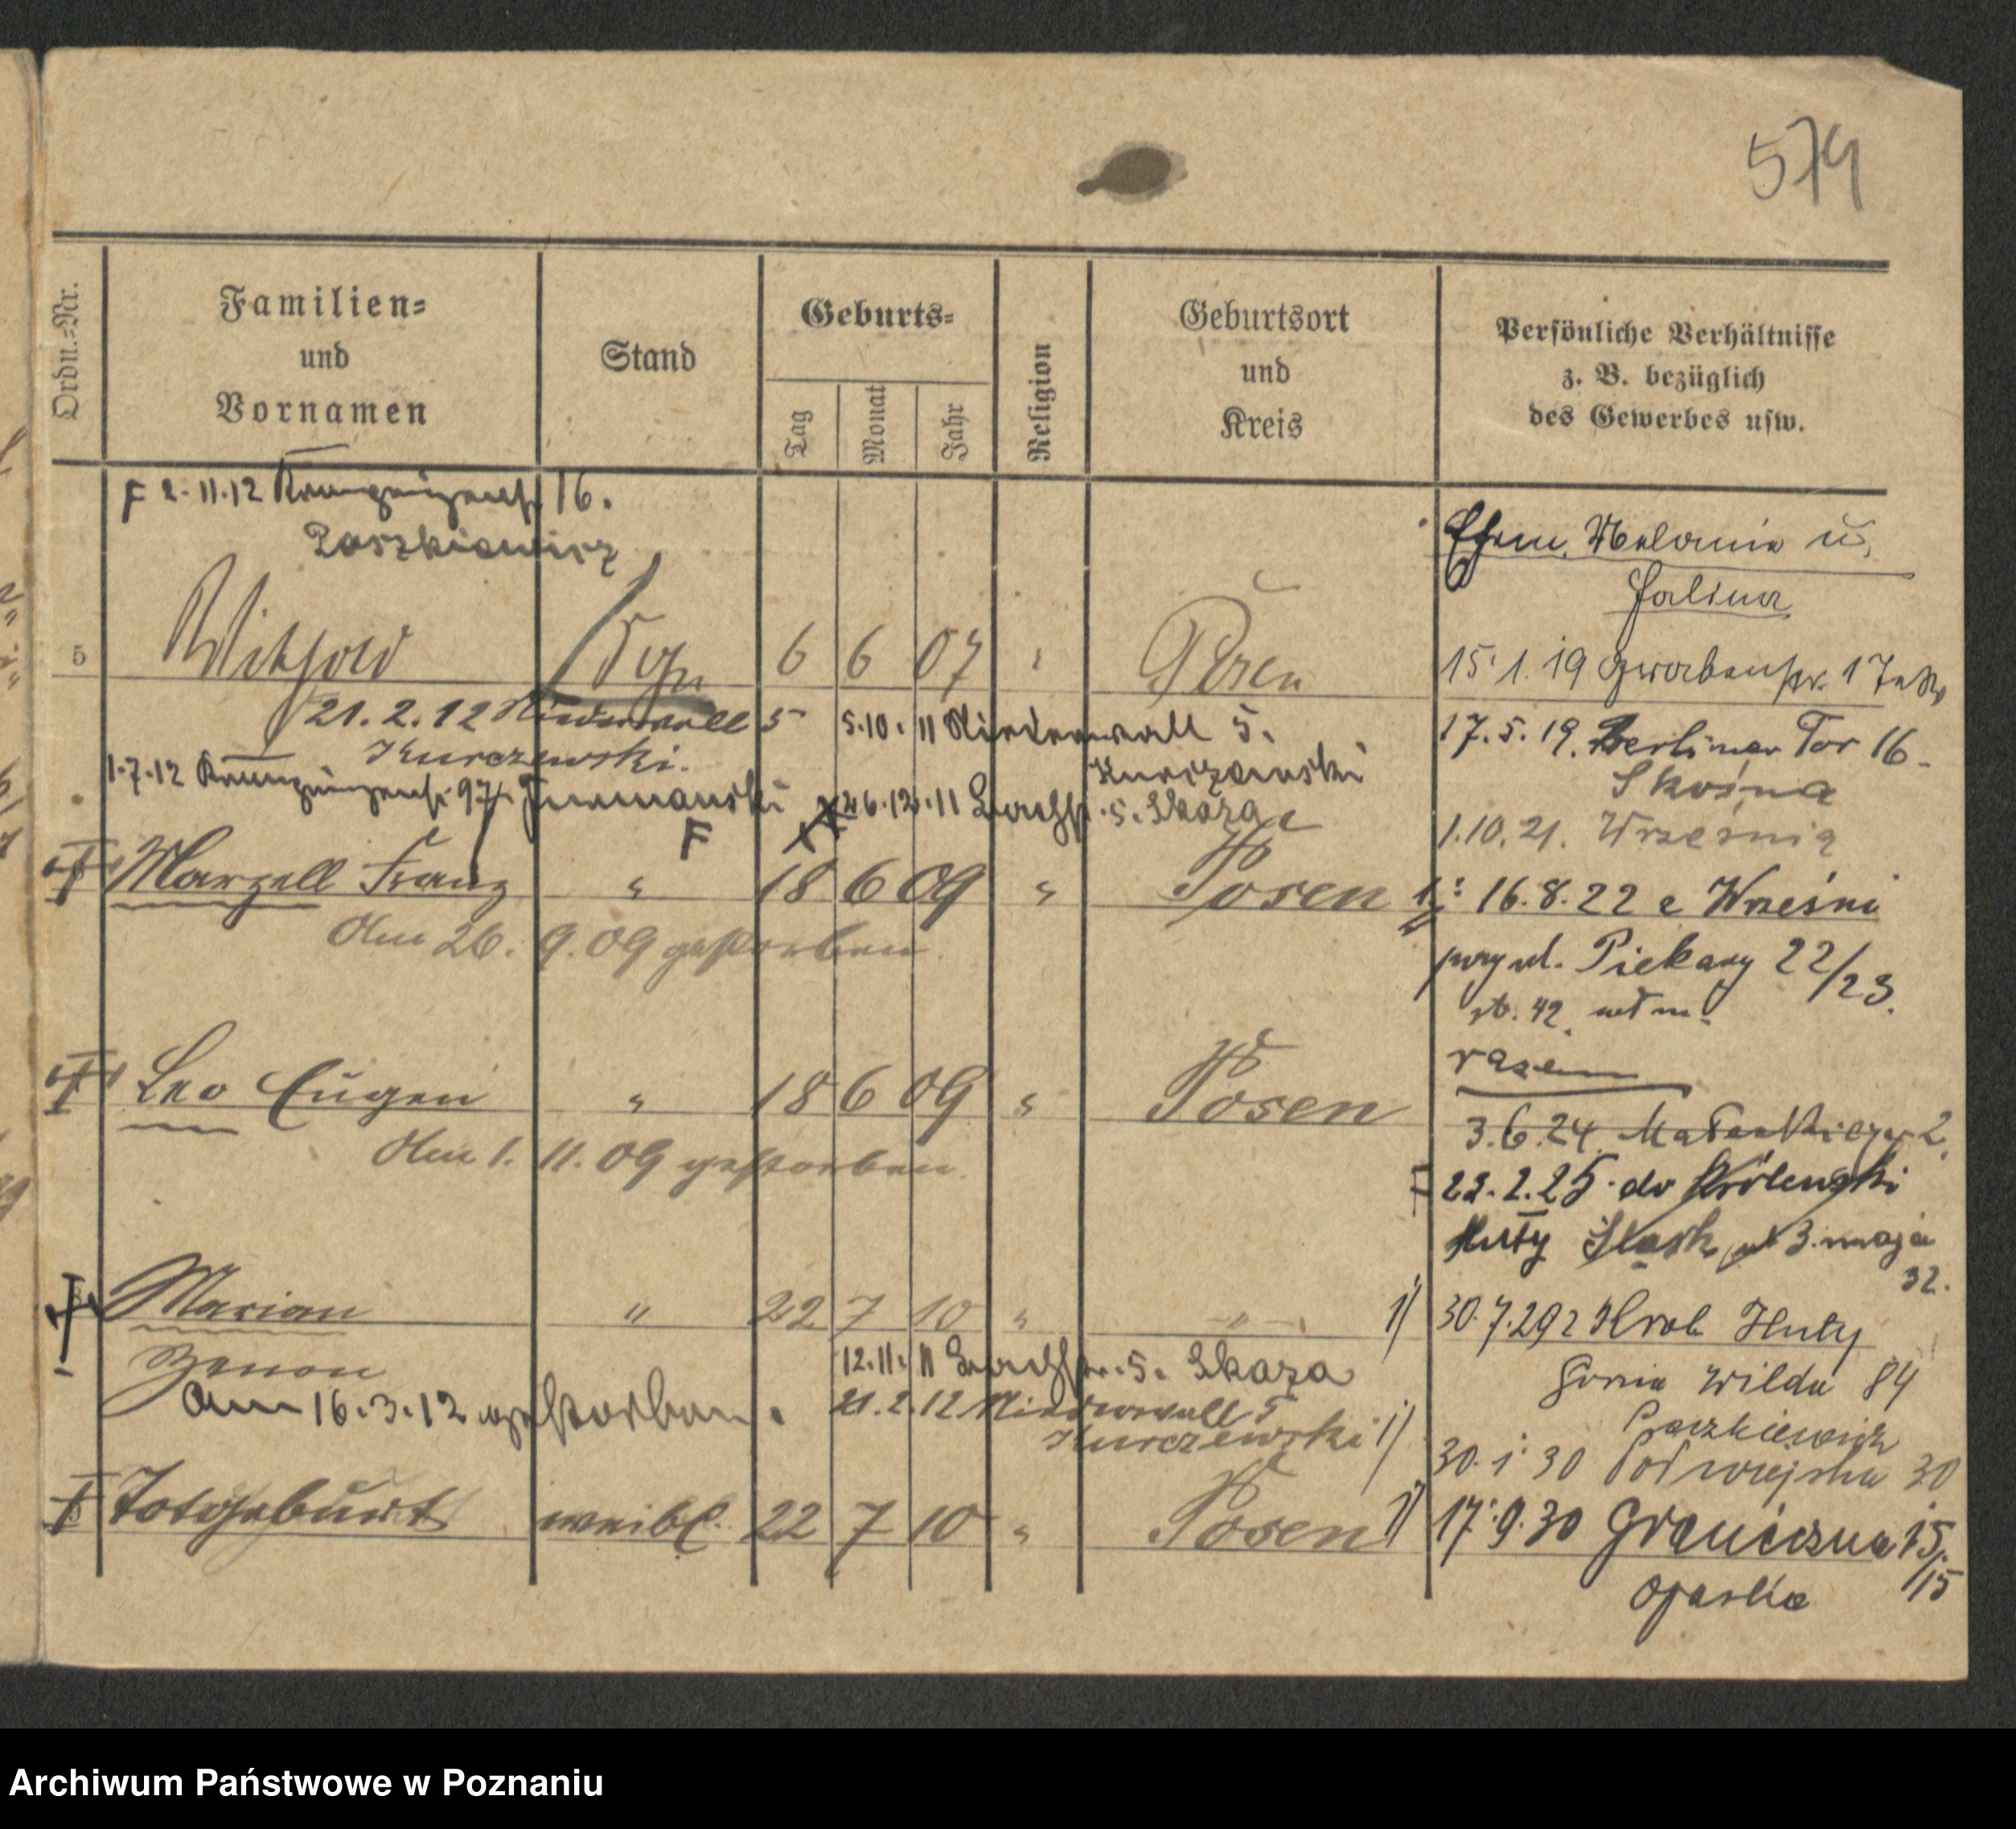 579
Ordn.=Nr.
Familien=
und
Vornamen
Stand
Geburts=
Tag
Monat
Jahr
Religion
Geburtsort
und
Kreis
Persönliche Verhältnisse
z. B. bezüglich
des Gewerbes usw.
F 2.11.12 16.
Paszkiewicz
Ehem. Melania u.
Halina
5 Withold 6 6 07 Posen
15.1.19
21.2.12 Niederwall 5
Kurczewski.
5.10.11 Niederwall 5.
Kurczewski
17.5.19. Berliner Tor 16
Skośna
1.7.12 97 Furmanski
26.12.11 Bachstr. 5. Skaza
F
1.10.21. Września
Marzell Franz " 18 6 09 " Posen
Am 26. 9. 09 gestorben.
16.8.22 z Wrześni
przy ul. Piekary 22/23.
st. 42
razem
Leo Eugen " 18 6 09 " Posen
Am 1. 11. 09 gestorben.
3.6.24. Matejki 2.
22.2.25 do Królewski
Huty Śląsk ul 3. maja
32.
Marian " 22 7 10 " "
Zenon
am 16.3.12 gestorben.
12.11.11 Bachstr. 5. Skaza
21.2.12 Niederwall 5
Kurczewski
1) 30.7.29 z Król Huty
Górna Wilda 84
Paszkiewicz
1) 30.1.30 Podwiejska 30
Totgeburt weibl. 22 7 10 " Posen
1) 17.9.30 Graniczna 15/15
Opaska
Archiwum Państwowe w Poznaniu